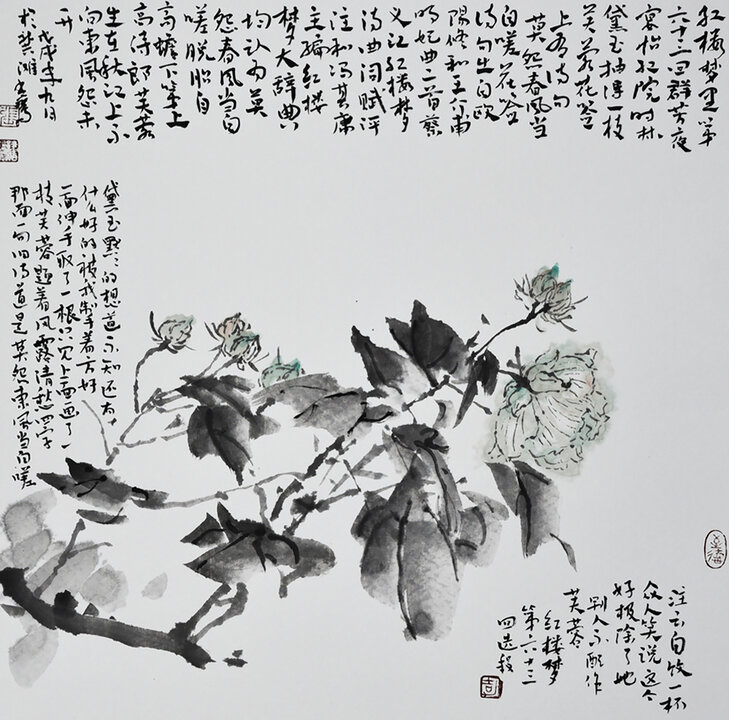 红楼梦里第
六十三回群芳夜
宴怡红院时林
黛玉抽得一枝
芙蓉花签
上有诗句
莫怨春风当
自嗟花签
诗句出自欧
阳修和王介甫
明妃曲二首蔡
义江红楼梦
诗曲词赋评
注和冯其庸
主编红楼
梦大辞典
均认为莫
怨春风当自
嗟脱胎自
高蟾下第上
高侍郎芙蓉
生在秋江上不
向东风怨未
开
戊戌年九月
黛玉默〻的想道不知还有
什么好的被我掣着方好
一面伸手取了一根只见上面画了一
枝芙蓉题着风露清愁四字
那面一句旧诗道是莫怨东风当自嗟
注云自饮一杯
众人笑说这个
好极除了她
别人不配作
芙蓉
红楼梦
第六十三
回选段